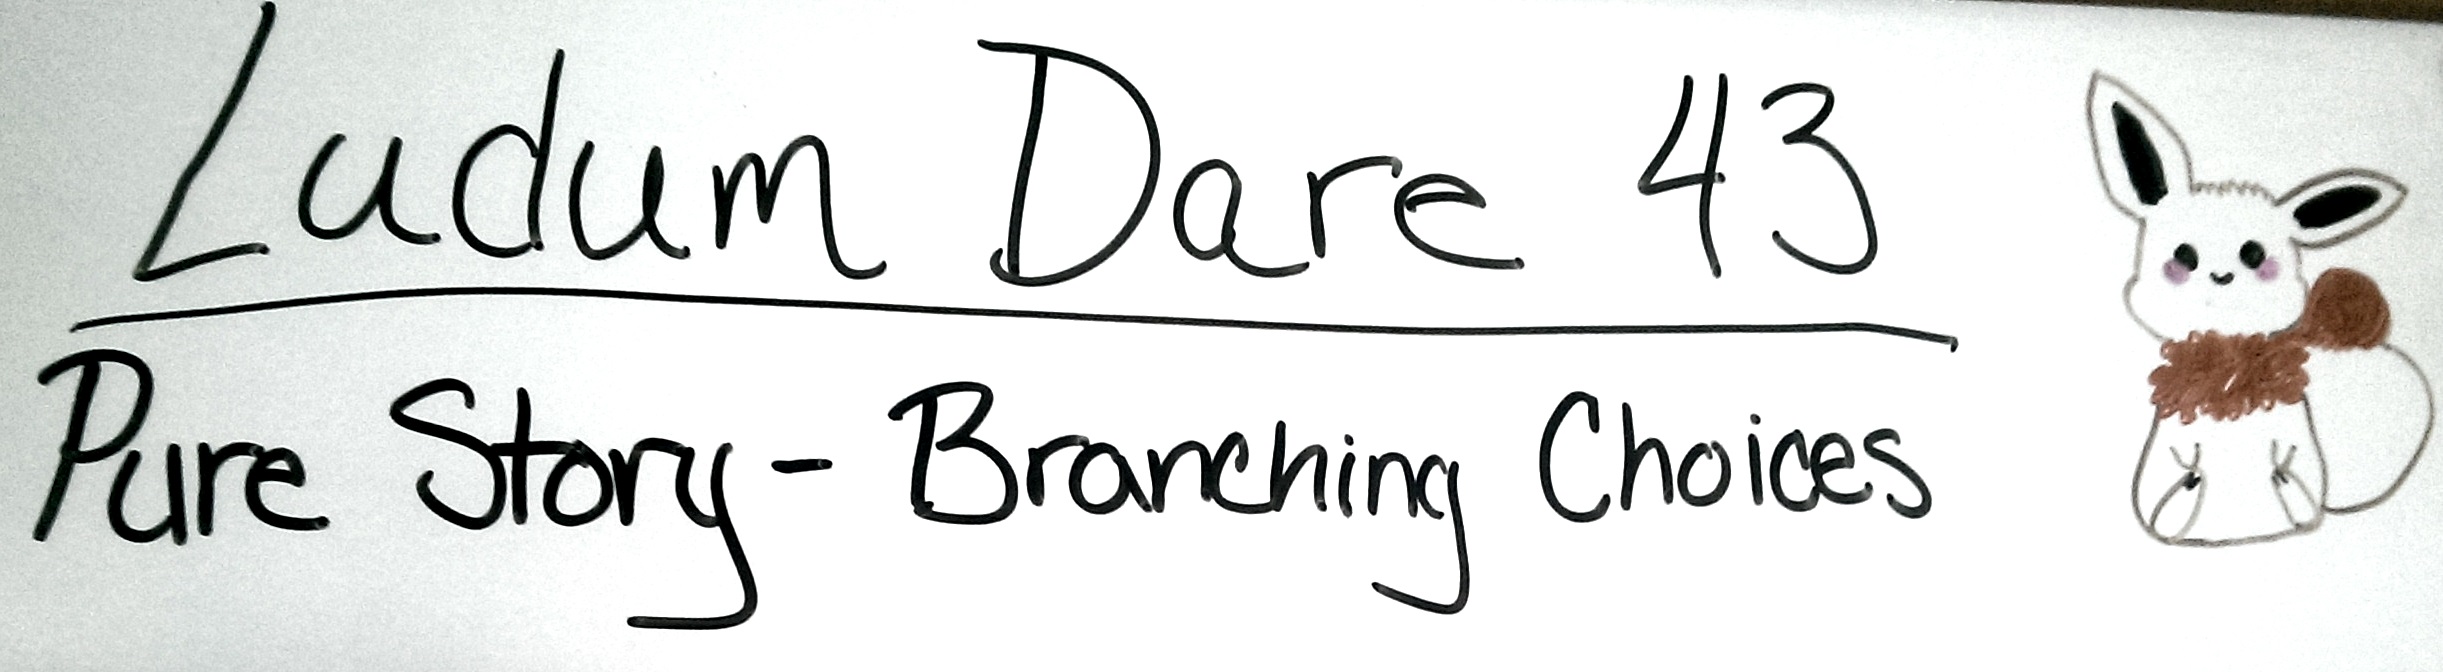 Ludum Dare 43
Pure Story - Branching Choices